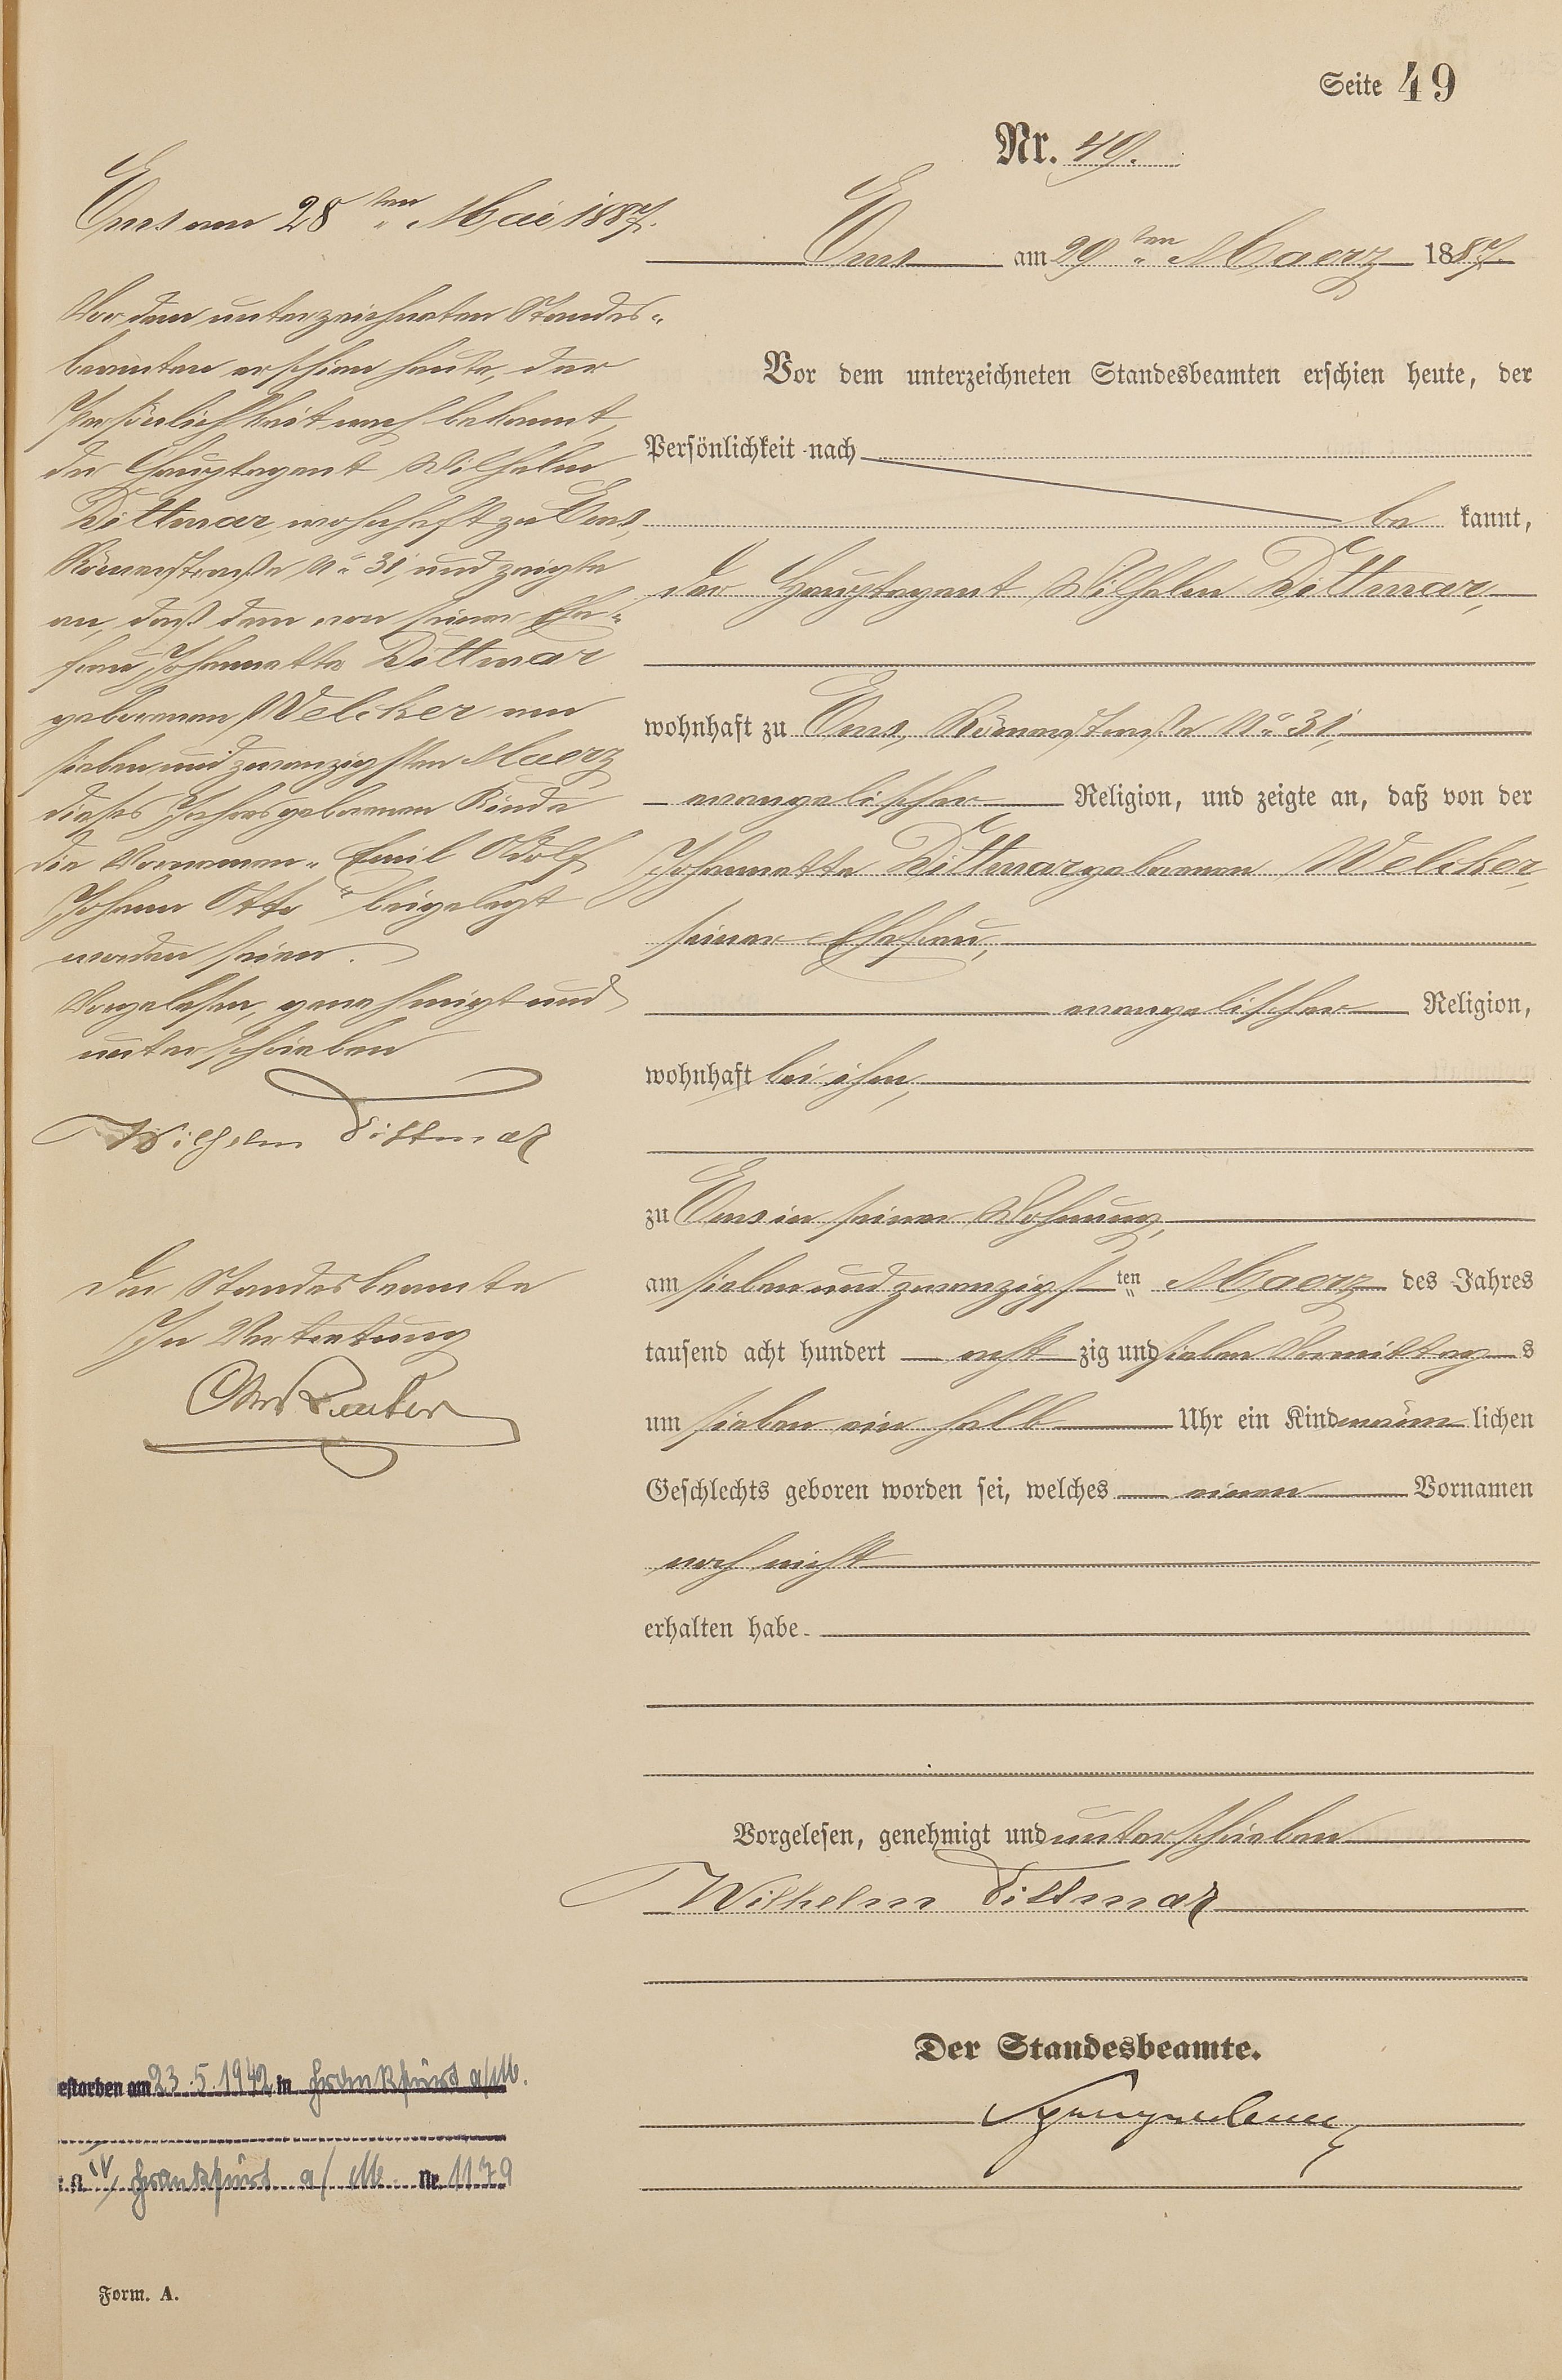 Seite 49
Nr. 49.
Ems am 29ten Maerz 1887.
Vor dem unterzeichneten Standesbeamten erschien heute, der
Persönlichkeit nach
be kannt,
der Hauptagent Wilhelm Dittmar,
wohnhaft zu Ems, Römerstraße No 31,
evangelischer Religion, und zeigte an, daß von der
Johannette Dittmar geborenen Welcker,
seiner Ehefrau,
evangelischer Religion,
wohnhaft bei ihm,
zu Ems in seiner Wohnung,
am sieben und zwanzigsten Maerz des Jahres
tausend acht hundert acht zig und sieben Vormittags
um sieben ein halb Uhr ein Kind männlichen
Geschlechts geboren worden sei, welches einen Vornamen
noch nicht
erhalten habe.
Vorgelesen, genehmigt und unterschrieben
Wilhelm Dittmar
Der Standesbeamte.
Ems am 28ten Mai 1887.
Vor dem unterzeichneten Standes-
beamten erschien heute, der
Persönlichkeit nach bekannt,
der Hauptagent Wilhelm
Dittmar, wohnhaft zu Ems,
Römerstraße No 31, und zeigte
an, daß dem von seiner Ehe-
frau, Johannette Dittmar
geborenen Welcker am
sieben und zwanzigsten Maerz
dieses Jahres geborenen Kinde
die Vornamen „Emil Adolf
Johann Otto" beigelegt
worden seien.
Vorgelesen, genehmigt und
unterschrieben
Wilhelm Dittmar
Der Standesbeamte
In Vertretung
estorben am 23.5.1942 in Frankfurt a/M.
t.A. IV/ Frankfurt a/M. Nr. 1179
Form. A.